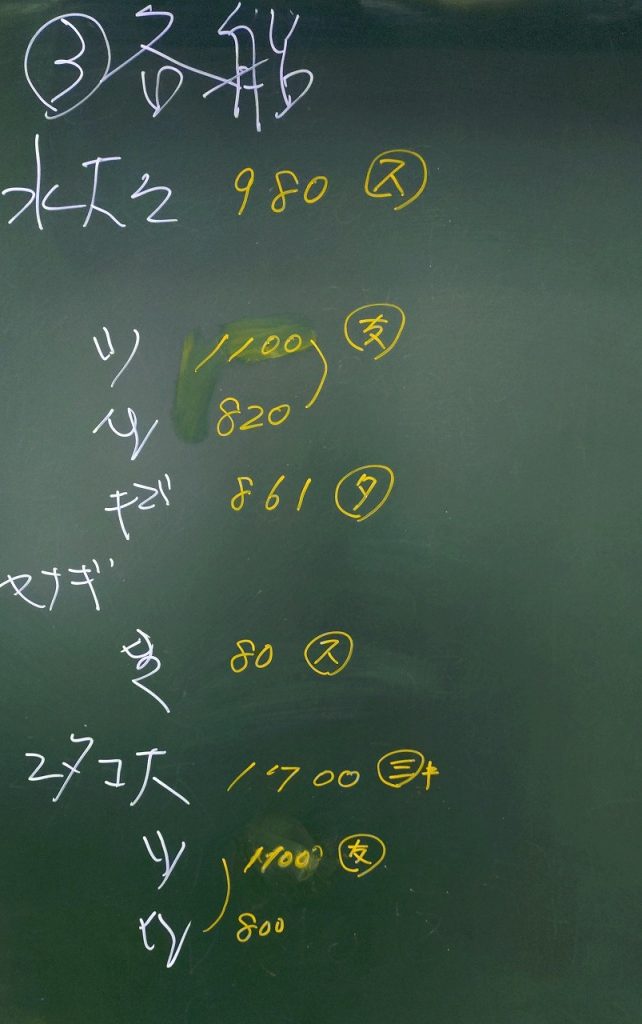 ③各船
水大 980 ス
ツ 1100 友
820
キズ 861 タ
ヤナギ
80 ス
ミタコ大 1700 三キ
ツ 1100 友
800